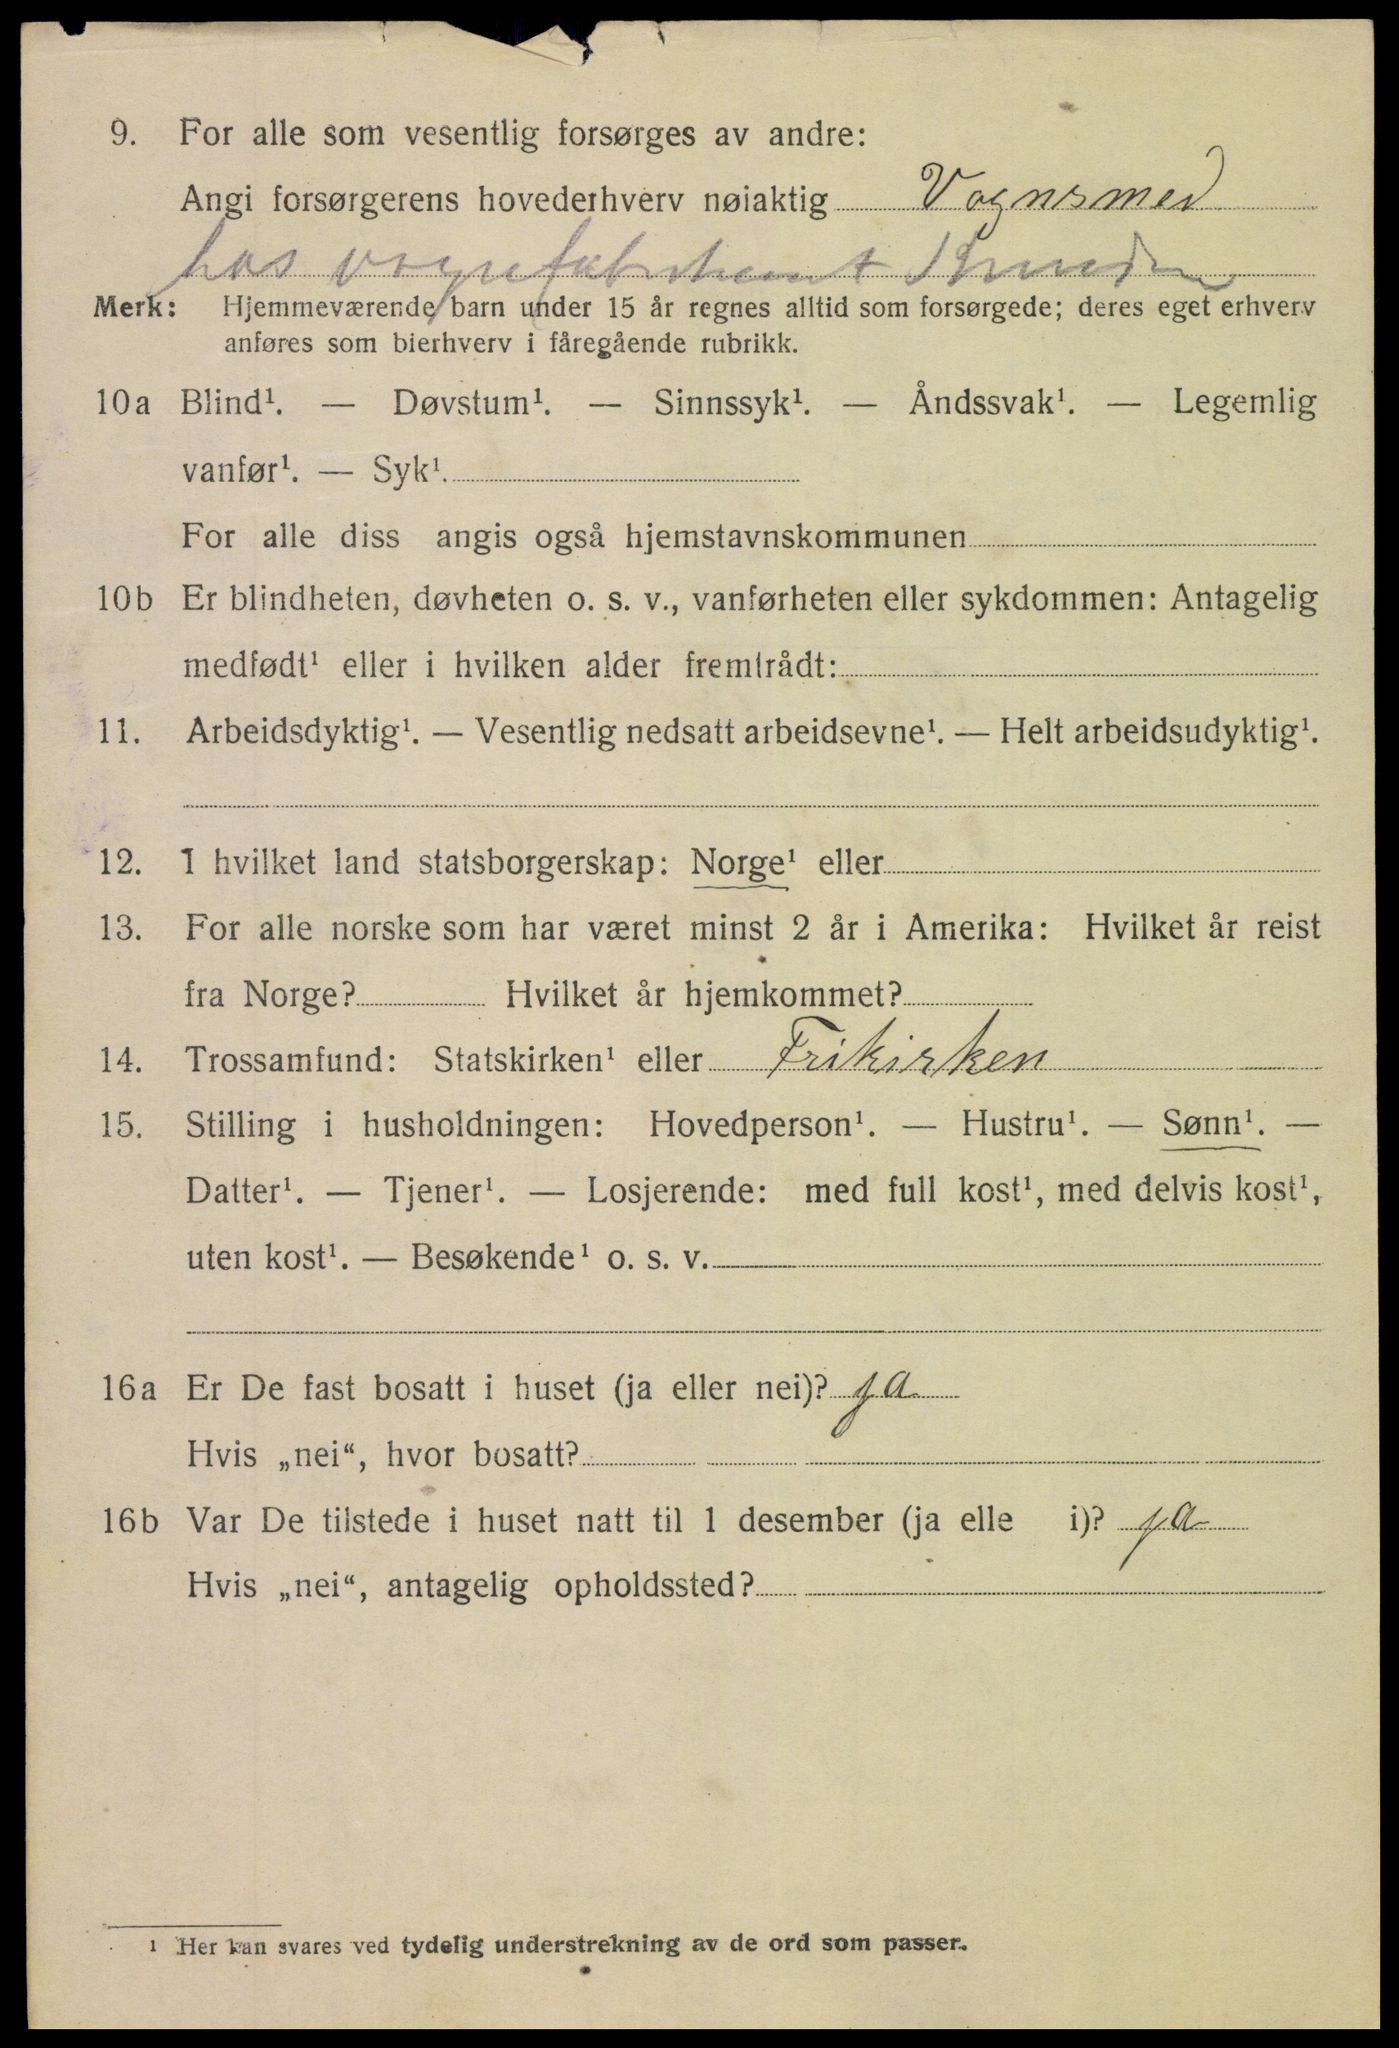 9. For alle som vesentlig forsørges av andre:
Angi forsørgerens hovederhverv nøiaktig Vognsmed
hos vognfabrikant
Merk: Hjemmeværende barn under 15 år regnes alltid som forsørgede; deres eget erhverv
anføres som bierhverv i fåregående rubrikk.
10a Blind¹. — Døvstum¹. — Sinnssyk¹. — Åndssvak¹. — Legemlig
vanfør¹. — Syk¹.
For alle diss angis også hjemstavnskommunen
10b Er blindheten, døvheten o. s. v., vanførheten eller sykdommen: Antagelig
medfødt¹ eller i hvilken alder fremtrådt:
11. Arbeidsdyktig¹. — Vesentlig nedsatt arbeidsevne¹. — Helt arbeidsudyktig¹.
12. I hvilket land statsborgerskap: Norge¹ eller
13. For alle norske som har været minst 2 år i Amerika: Hvilket år reist
fra Norge? Hvilket år hjemkommet?
14. Trossamfund: Statskirken¹ eller Frikirken
15. Stilling i husholdningen: Hovedperson¹. — Hustru¹. — Sønn¹. —
Datter¹. — Tjener¹. — Losjerende: med full kost¹, med delvis kost¹,
uten kost¹. — Besøkende¹ o. s. v.
16a Er De fast bosatt i huset (ja eller nei)? ja
Hvis „nei“, hvor bosatt?
16b Var De tilstede i huset natt til 1 desember (ja elle i)? ja
Hvis „nei“, antagelig opholdssted?
¹ Her kan svares ved tydelig understrekning av de ord som passer.